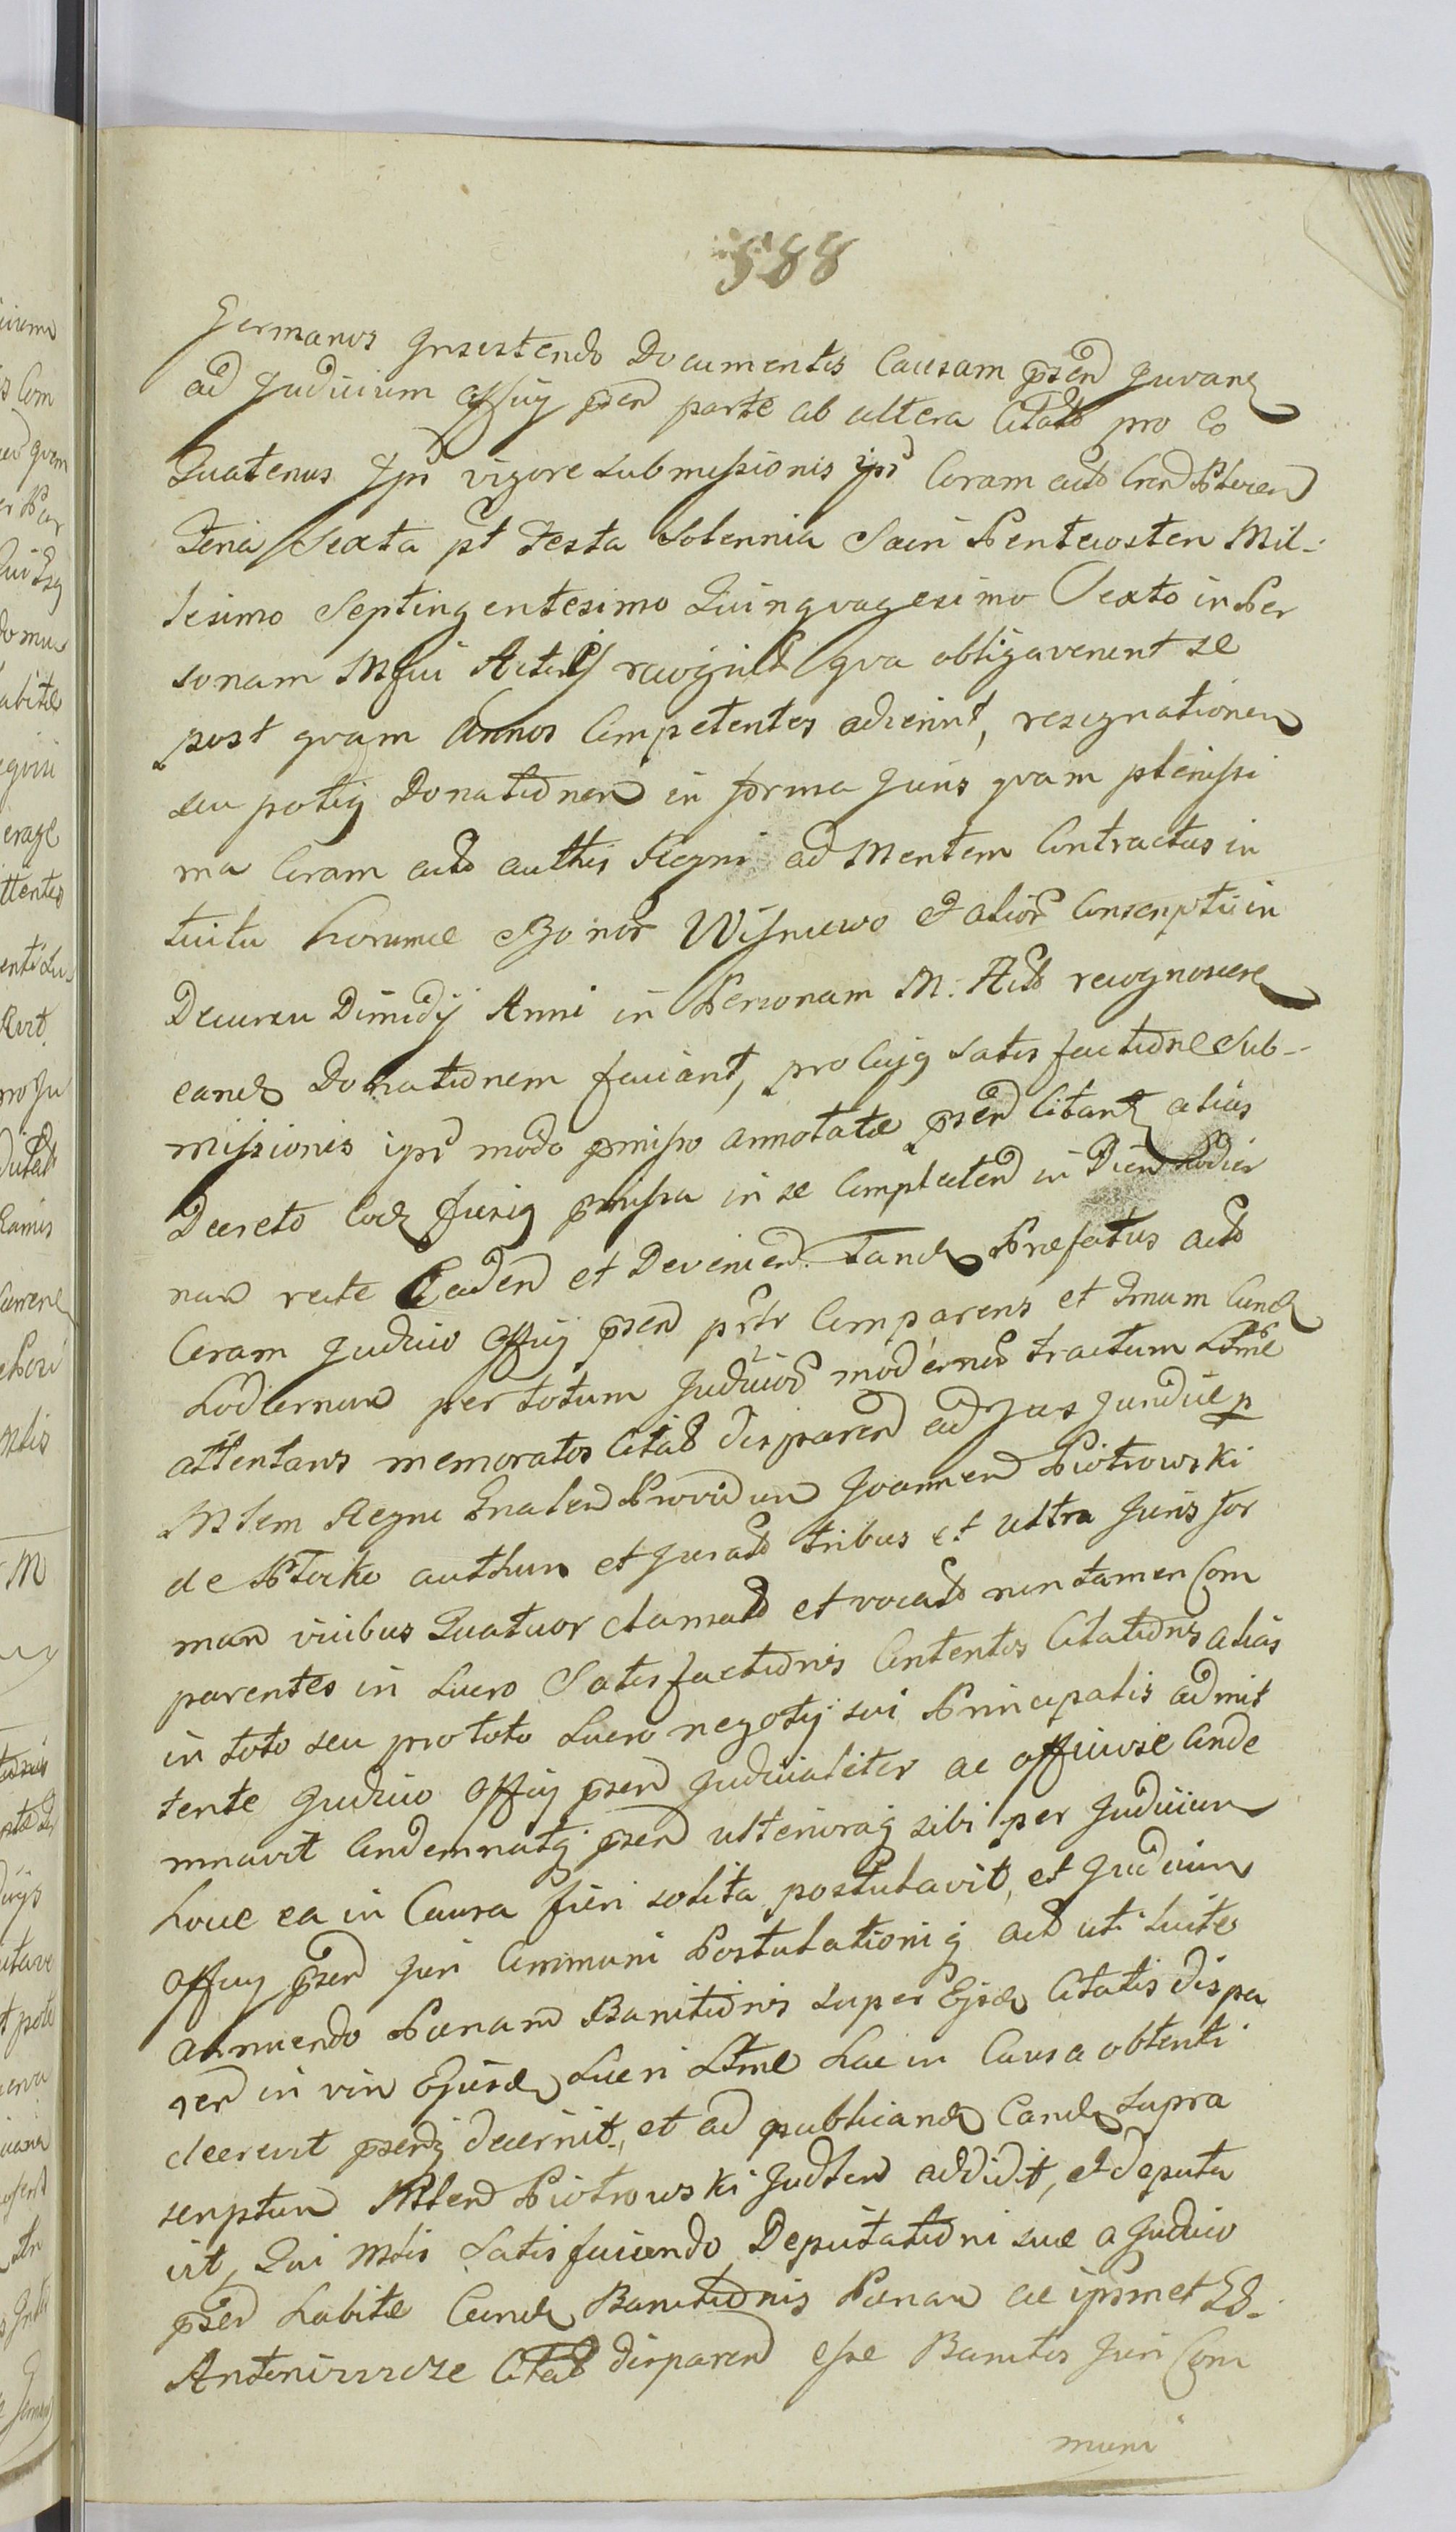 588
Germanos Insistendo Documentis Causam psen Juvan
ad Judicium Officij psen parte ab altera Citato pro eo
Quatenus Ipsi vigore submissionis ips Coram actis Cren Plocen
Feria Sexta pt Festa Solennia Sacri Pentecosten Mil-
lesimo Septingentesimo Quinqvagesimo Sexto in Per
sonam Mfici Actoris recognit qva obligaverunt se
post qvam Annos Competentes adierint, resignationem
seu potig Donationem in forma Juris qvam plenissi
ma Coram actis authis Regni ad Mentem Contractus in
tuitu horumce Bonor Wisniewo et alior Conscripti in
Decursu Dimidij Anni in Personam M. Act recognoscere
eand Donationem faciant, pro Cujg satisfactione Sub-
missionis ips modo pmisso annotatae psen Citant alias
Decreto Cod fusig pmissa in se Complecten in Diem hodier
nam recte Caden et Devenien. Tand Praefatus act
Coram Judicio Officij psen psltr Comparens et Tnum Cund
hodiernum per totum Judicior modernor tractum Ltme
attentans memoratos Citat disparen ad Jus Jundice p
Mlem Regni Gnalem Providum Joannem Piotrowski
de Plocko authum et Jurato tribus et ultra Juris for
mam vicibus Quatuor clamato et vocato nontamen Com
parentes in Lucro Satisfactionis Contentor Citationis alias
in toto seu pro toto Lucro negotij sui Principalis admit
tente Judicio Officij psen Judicialiter ac officiose Conde
mnavit Condemnatg psen ulteriorag sibi per Judicium
hocce ea in Causa fieri solita postulavit, et Judicium
Officij psen Juri Communi Postulationig act uti licite
annuendo Poenam Banitionis super Ejsd Citatis dispa
ren in vim Ejusd Lucri Ltme hac in Causa obtenti
decrevit psenq decernit, et ad publicand Eand supra
scriptum Mlem Piotrowski Judlem addidit, et deputa
vit, Qui Mlis Satisfaciendo Deputationi suae a Judicio
psen habitae Eand Banitionis Poenam ac ipsmet GG.
Antoninorze Citat disparen esse Banitos Juri Com
muni